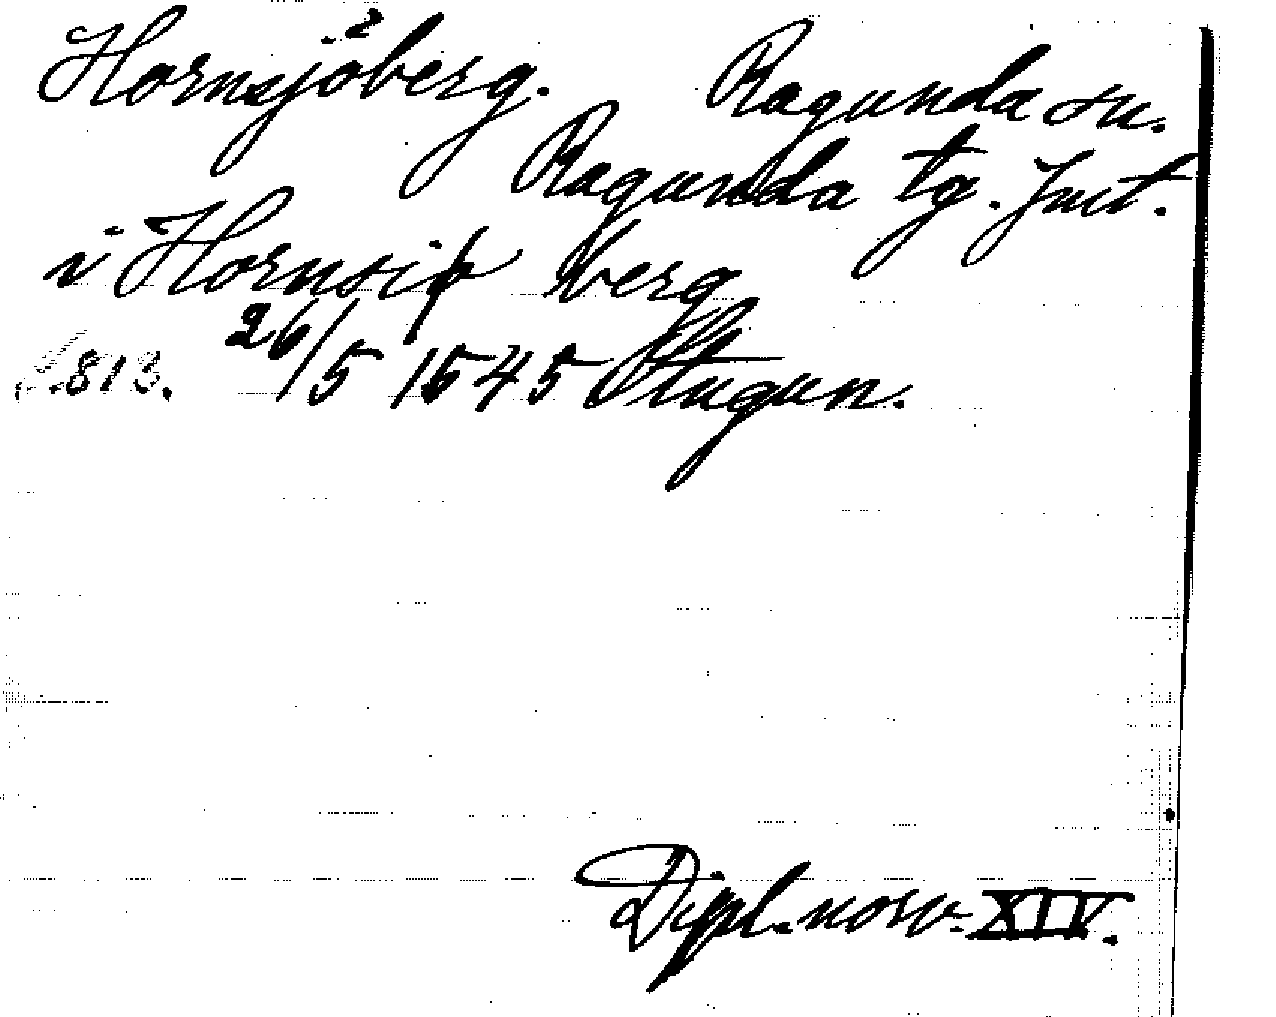 Hornsjöberg. Ragunda sn.
Ragunda tg. Jmt.
i Hornsiø berg
s. 813. 26/5 1545 Stugun.
Dipl. norv. XIV.